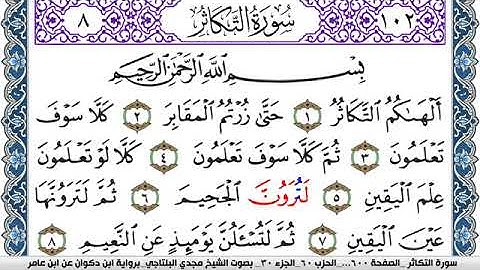 ١٠٢ سُورَةُ التَّكَاثُرِ ٨
بِسْمِ اللَّهِ الرَّحْمَٰنِ الرَّحِيمِ
أَلْهَىٰكُمُ التَّكَاثُرُ ١ حَتَّىٰ زُرْتُمُ الْمَقَابِرَ ٢ كَلَّا سَوْفَ
تَعْلَمُونَ ٣ ثُمَّ كَلَّا سَوْفَ تَعْلَمُونَ ٤ كَلَّا لَوْ تَعْلَمُونَ
عِلْمَ الْيَقِينِ ٥ لَتُرَوُنَّ الْجَحِيمَ ٦ ثُمَّ لَتَرَوُنَّهَا
عَيْنَ الْيَقِينِ ٧ ثُمَّ لَتُسْـَٔلُنَّ يَوْمَئِذٍ عَنِ النَّعِيمِ ٨
سورة التكاثر_الصفحة ٦٠٠... الحزب ٦٠_الجزء ٣٠_ بصوت الشيخ مجدي البلتاجي_برواية ابن ذكوان عن ابن عامر